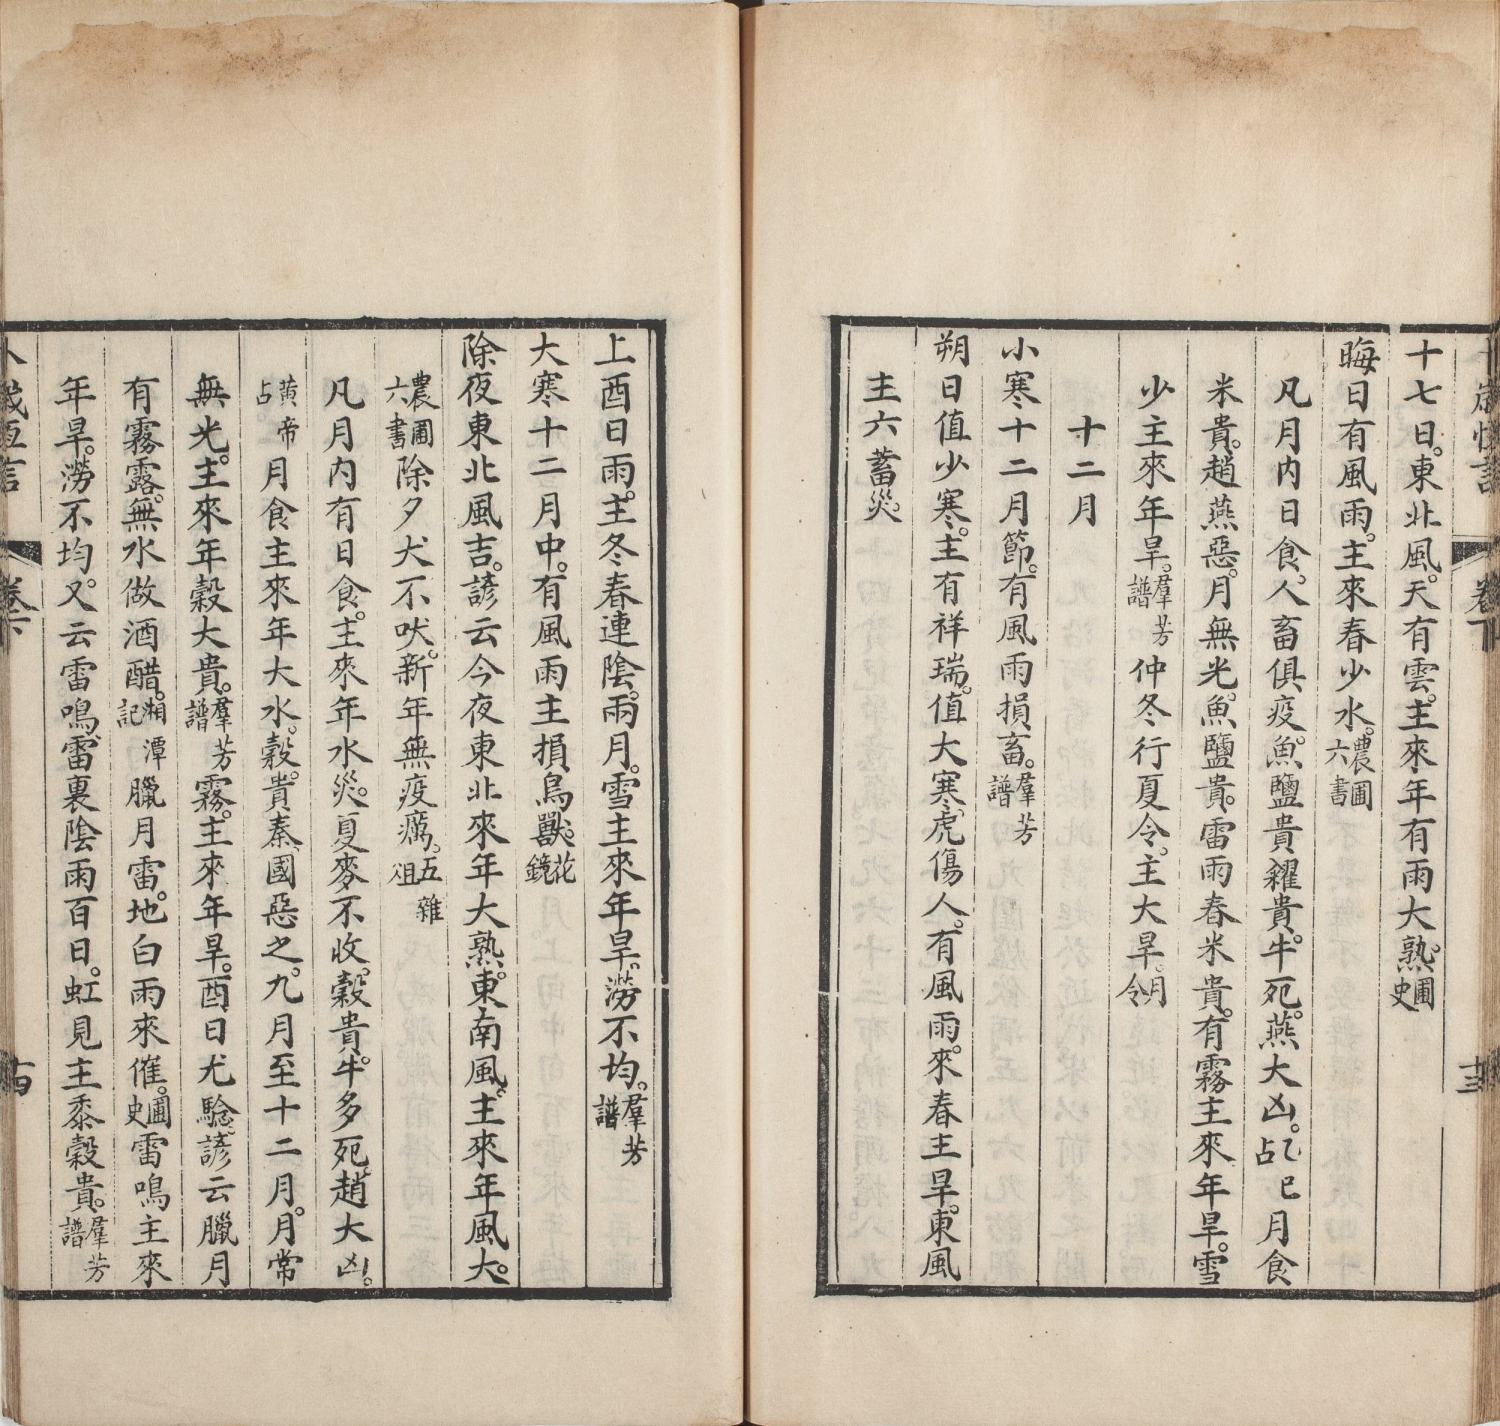 卷下
十三
十七日。東北風。天有雲。主來年有雨大熟。圃史
晦日有風雨。主來春少水。農圃六書
凡月内日食。人畜俱疫。魚鹽貴糴貴。牛死。燕大凶。乙巳占月食
米貴。趙燕惡。月無光。魚鹽貴。雷雨春米貴。有霧主來年旱。雪
少主來年旱。羣芳譜仲冬行夏令。主大旱。月令
十二月
小寒十二月節。有風雨損畜。羣芳譜
朔日值少寒。主有祥瑞。值大寒。虎傷人。有風雨。來春主旱。東風
主六蓄災。
上酉日雨。主冬春連陰。兩月。雪主來年旱。澇不均。羣芳譜
大寒十二月中。有風雨主損鳥獸。花鏡
除夜東北風吉。諺云今夜東北來年大熟。東南風。主來年風大。
農圃六書除夕犬不吠。新年無疫癘。五雜俎
凡月内有日食。主來年水災。夏麥不收。穀貴。牛多死。趙大凶。
黄帝占月食主來年大水。穀貴。秦國惡之。九月至十二月。月常
無光。主來年穀大貴。羣芳譜霧。主來年旱。酉日尤驗。諺云臘月
有霧露。無水做酒醋。湘潭記臘月雷。地白雨來催。圃史雷鳴主來
年旱。澇不均。又云雷鳴雷裏陰雨百日。虹見主黍穀貴。羣芳譜
卷下
十四